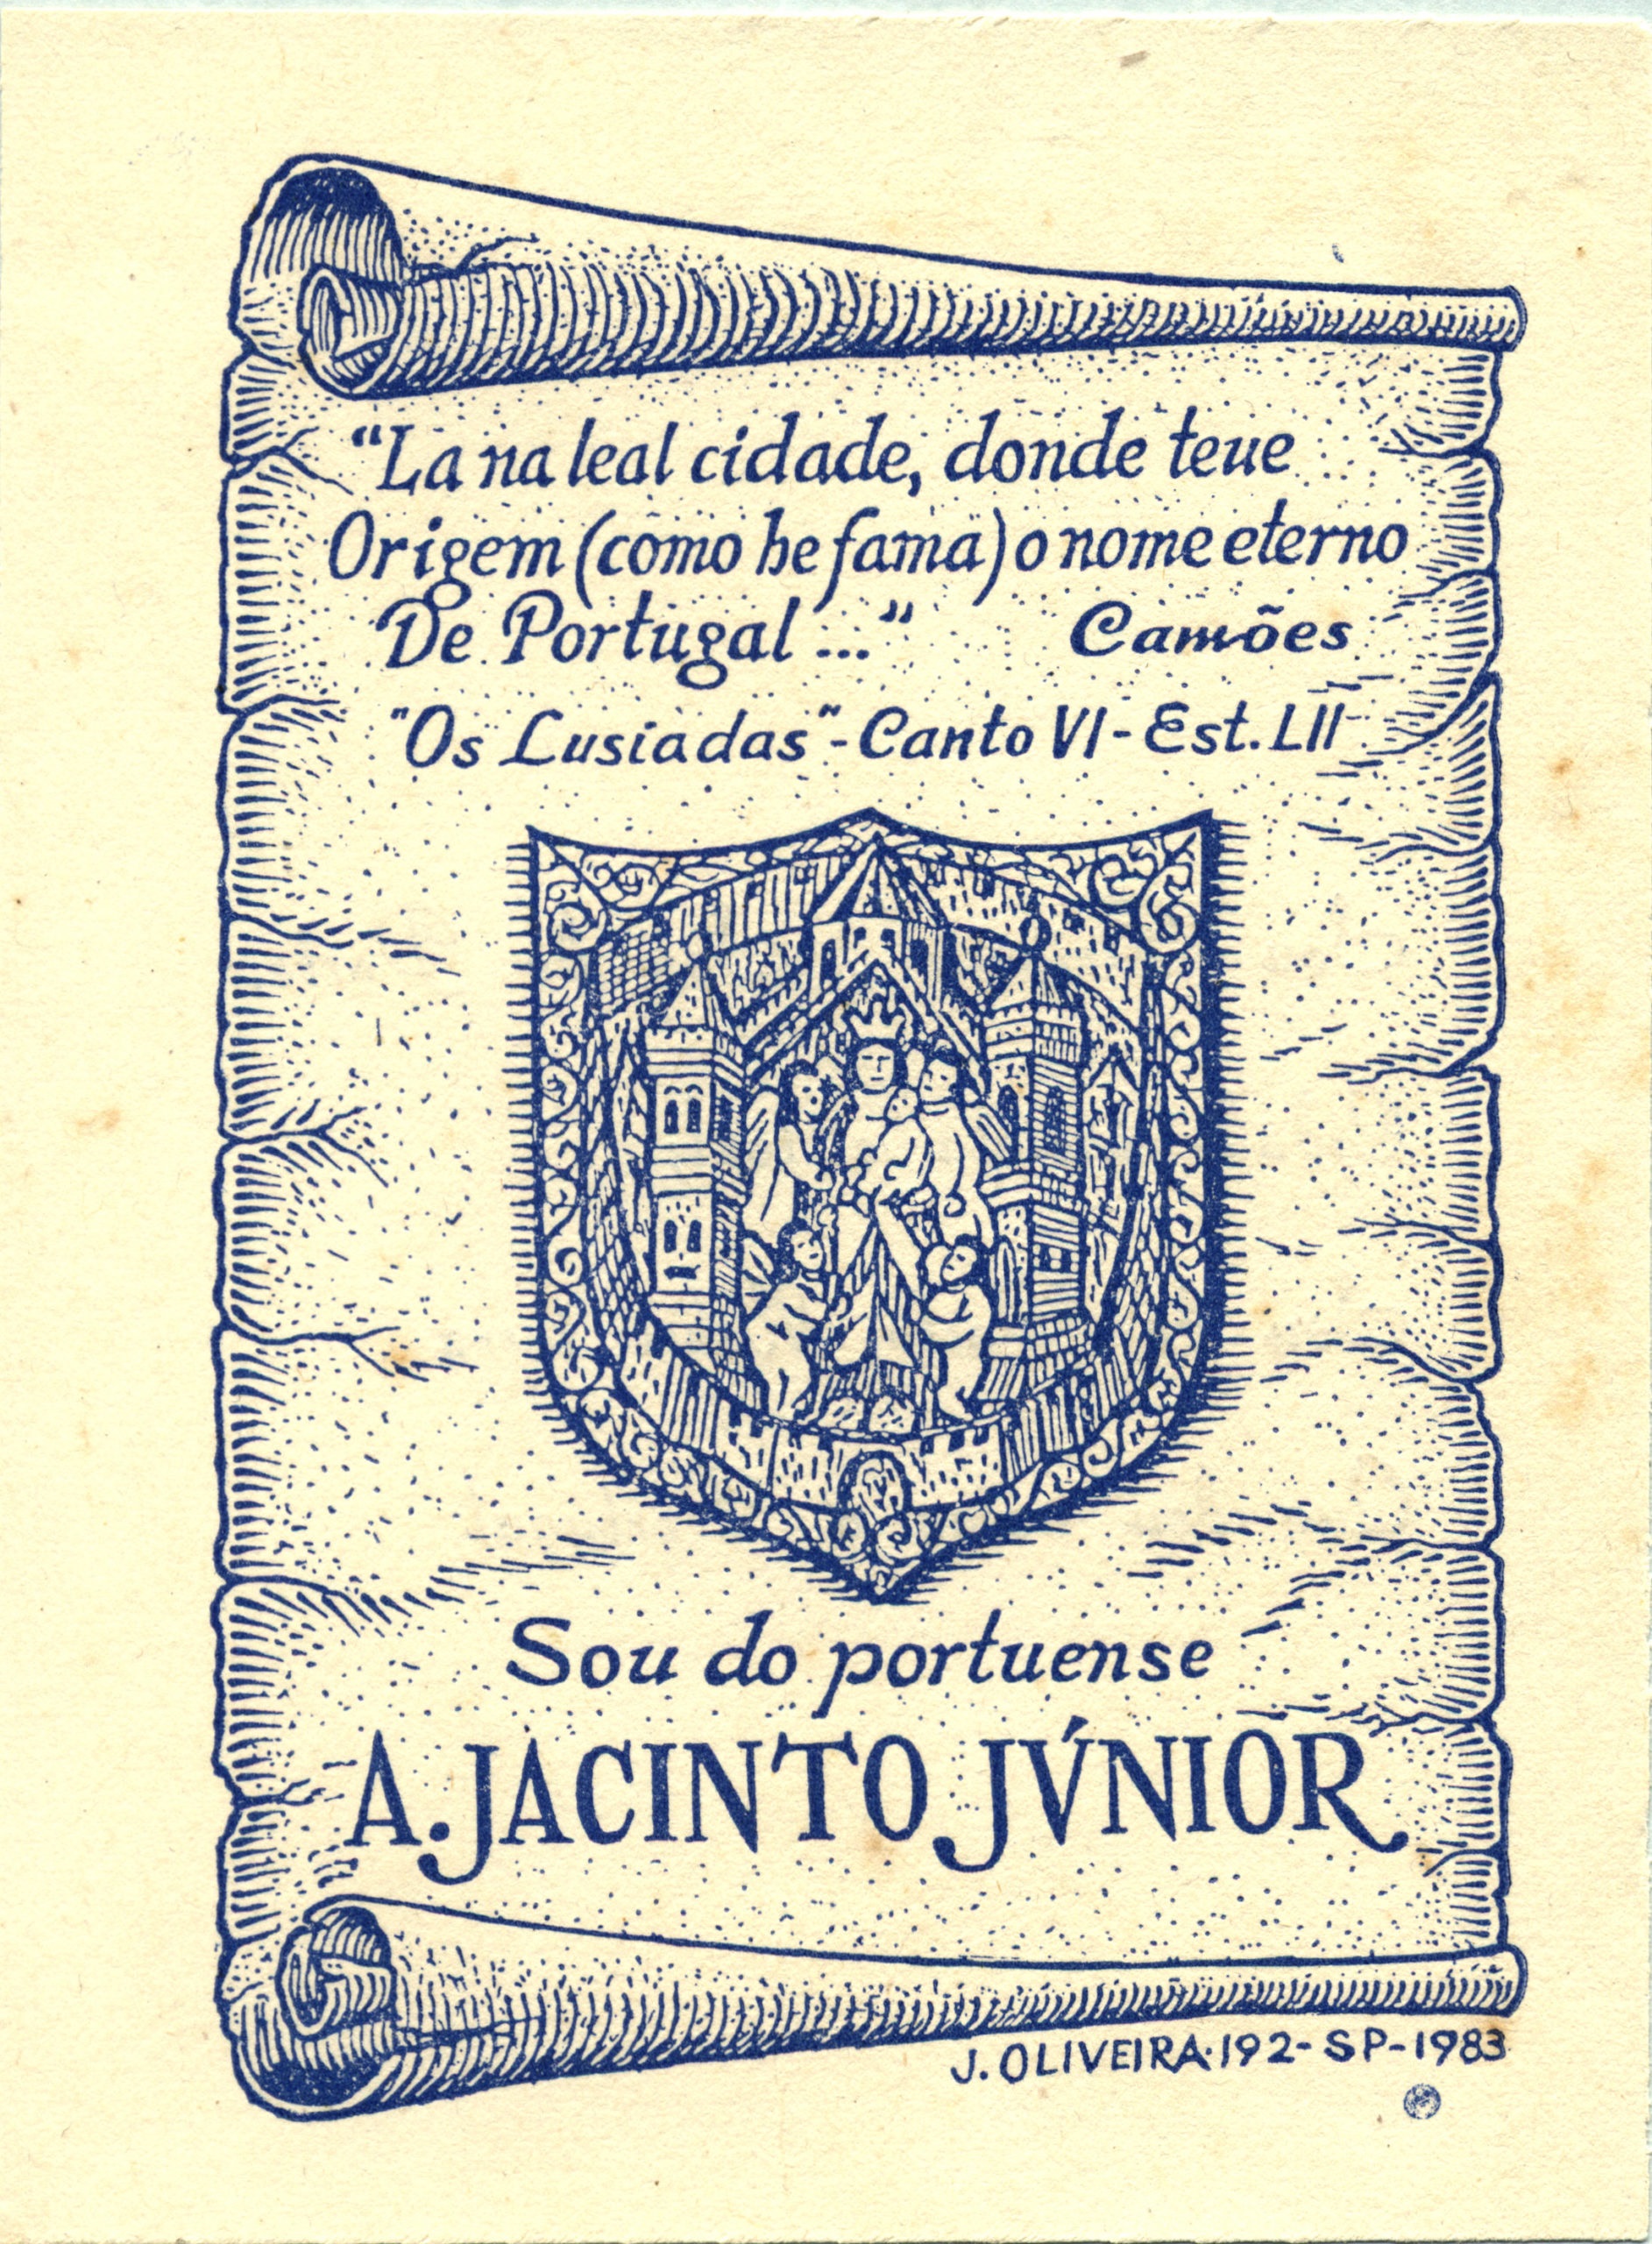 "La na leal cidade, donde teue
Origem (como he fama) o nome eterno
De Portugal ..." Camões
"Os Lusiadas" - Canto VI - Est. LII
Sou do portuense
A. JACINTO JÚNIOR
J. OLIVEIRA · 192 - SP - 1983